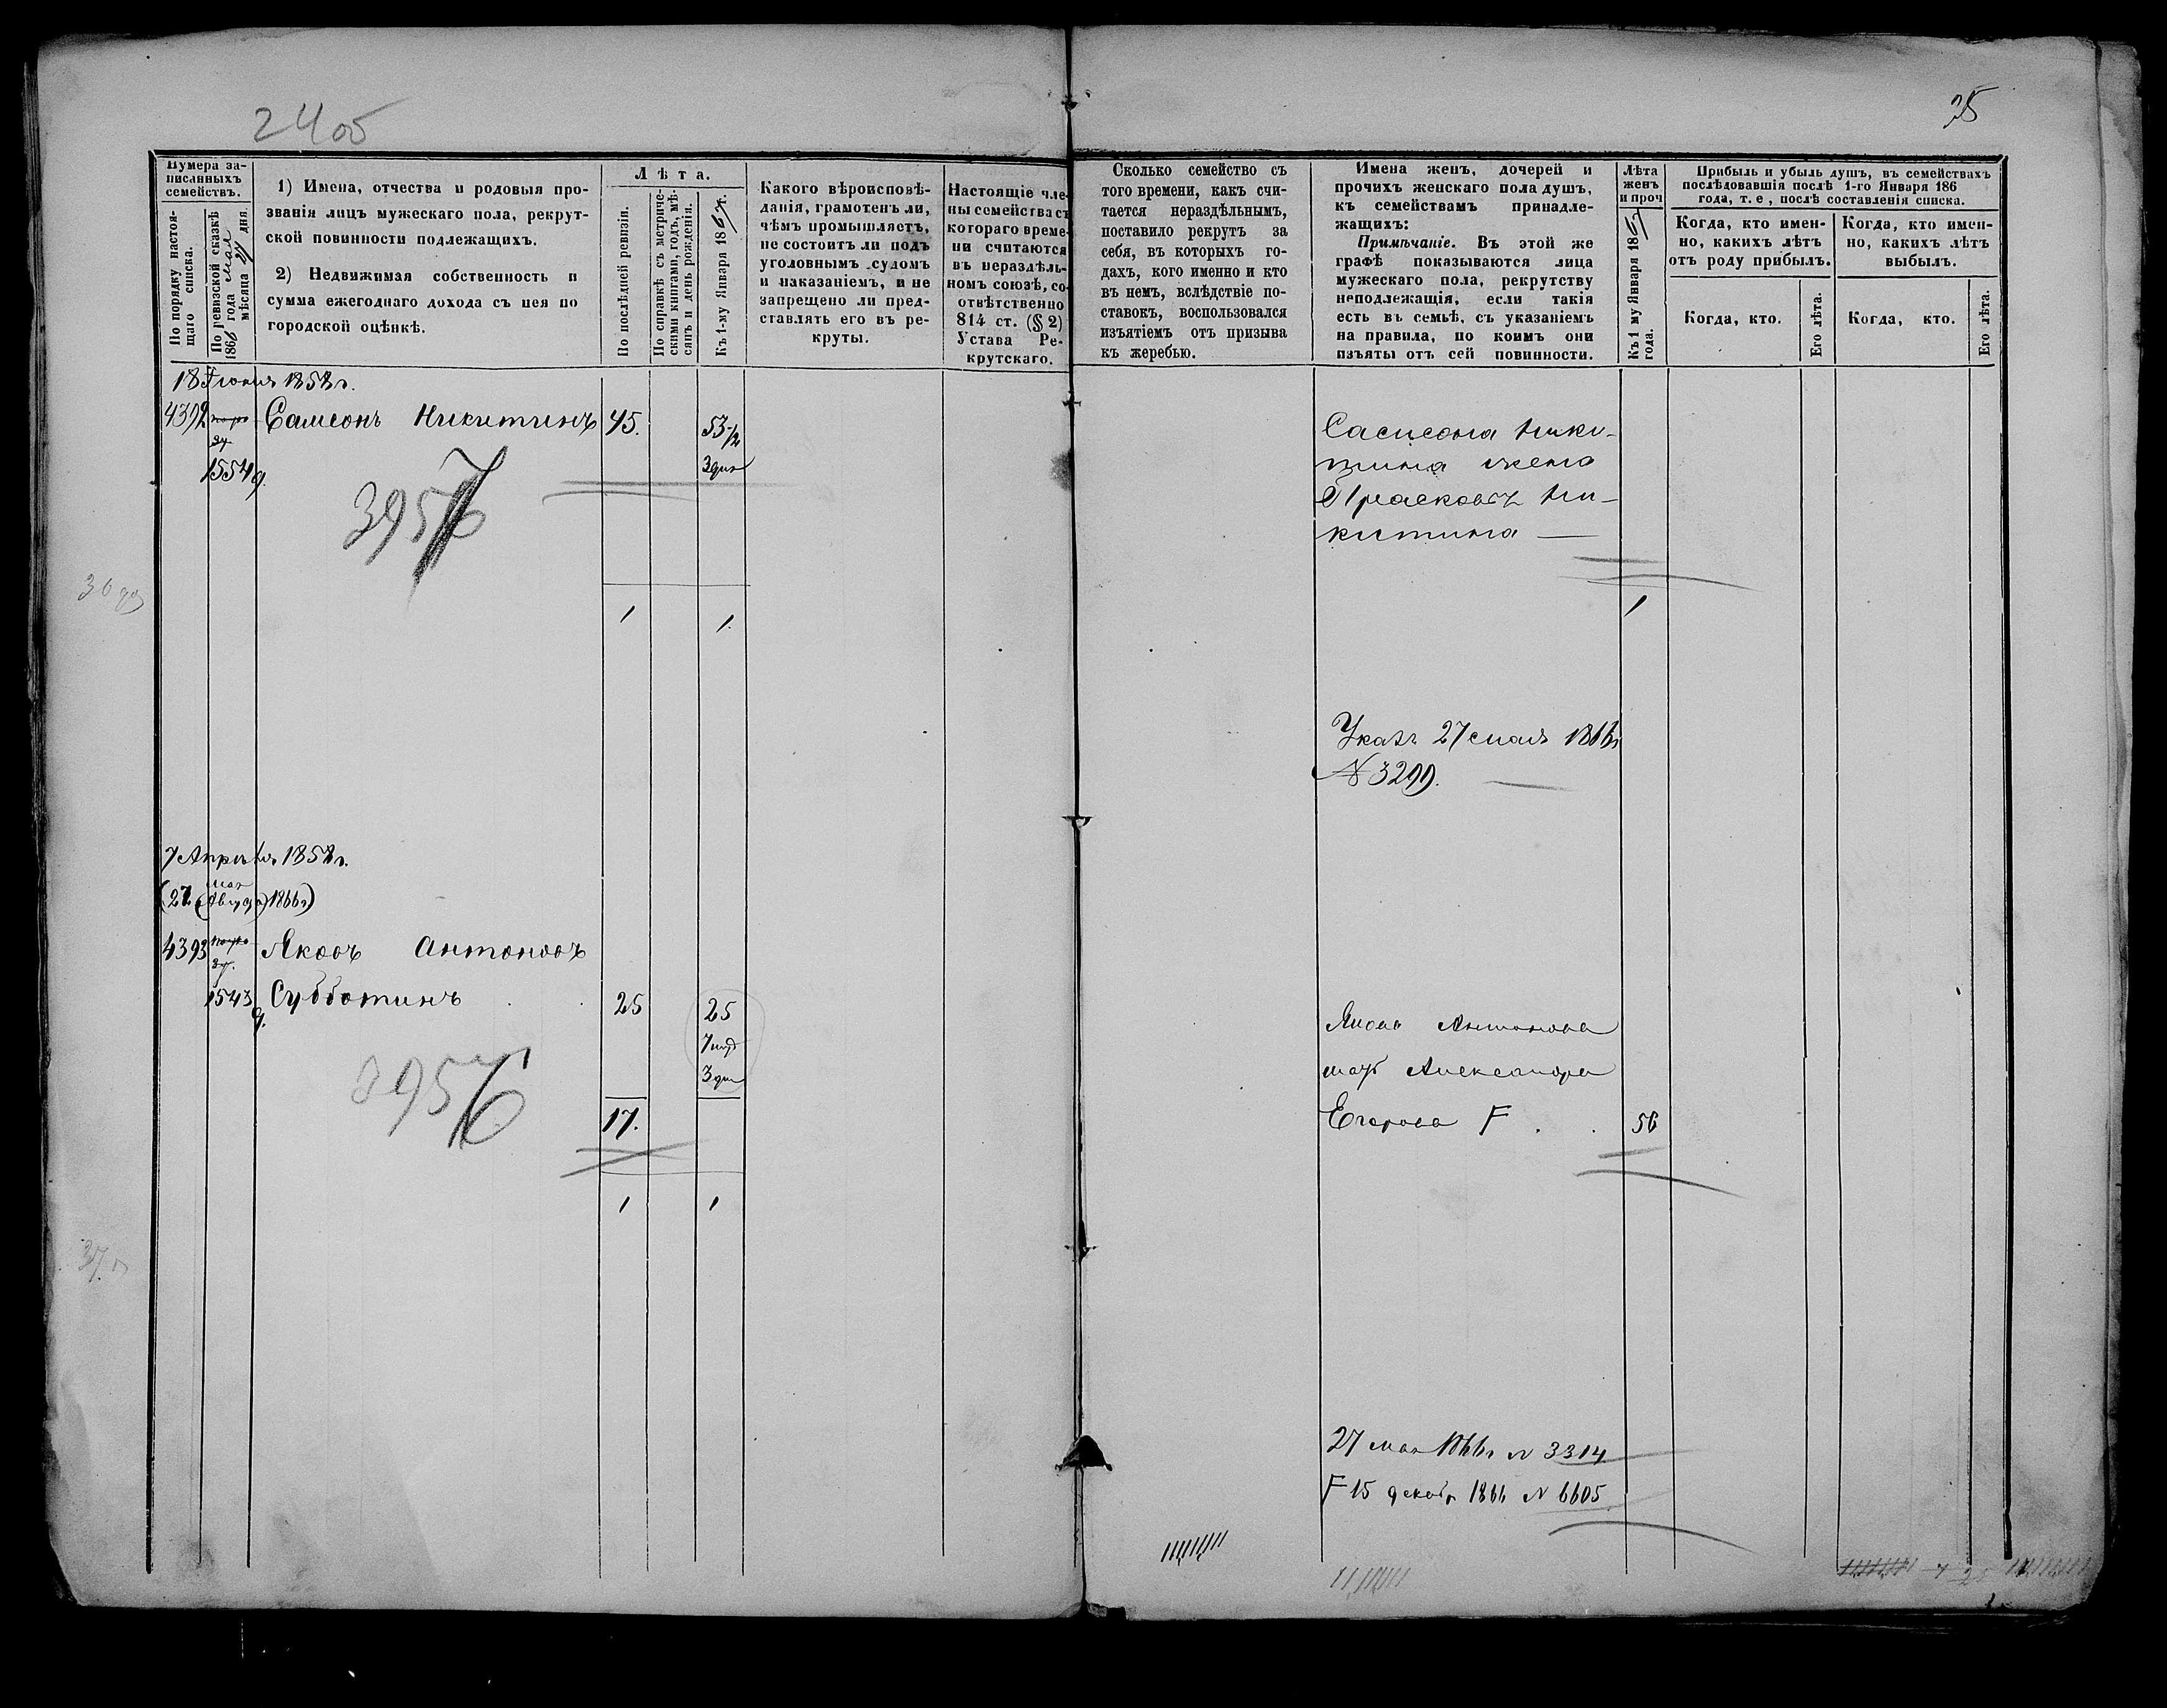 24об
25
Нумера за-
писанныхъ
семействъ.
По порядку настоя-
щаго списка.
По ревизской сказкѣ
186 года мая
мѣсяца 27 дня.
1) Имена, отчества и родовыя про-
званія лицъ мужескаго пола, рекрут-
ской повинности подлежащихъ.
2) Недвижимая собственность и
сумма ежегоднаго дохода съ нея по
городской оцѣнкѣ.
Лѣта.
По послѣдней ревизіи.
По справкѣ съ метриче-
скими книгами, годъ, мѣ-
сяцъ и день рожденія.
Къ 1-му Января 1867 г.
Какого вѣроисповѣ-
данія, грамотенъ ли,
чѣмъ промышляетъ,
не состоитъ ли подъ
уголовнымъ судомъ
и наказаніемъ, и не
запрещено ли пред-
ставлять его въ ре-
круты.
Настоящіе чле-
ны семейства съ
котораго време-
ни считаются
въ нераздѣль-
номъ союзѣ, со-
отвѣтственно
814 ст. (§ 2)
Устава Ре-
крутскаго.
Сколько семейство съ
того времени, какъ счи-
тается нераздѣльнымъ,
поставило рекрутъ за
себя, въ которыхъ го-
дахъ, кого именно и кто
въ немъ, вслѣдствіе по-
ставокъ, воспользовался
изъятіемъ отъ призыва
къ жеребью.
Имена женъ, дочерей и
прочихъ женскаго пола душъ,
къ семействамъ принадле-
жащихъ:
Примѣчаніе. Въ этой же
графѣ показываются лица
мужескаго пола, рекрутству
неподлежащія, если такія
есть въ семьѣ, съ указаніемъ
на правила, по коимъ они
изъяты отъ сей повинности.
Лѣта
женъ
и проч
Къ 1 му Января 1867
года.
Прибыль и убыль душъ, въ семействахъ
послѣдовавшія послѣ 1-го Января 186
года, т. е , послѣ составленія списка.
Когда, кто имен-
но, какихъ лѣтъ
отъ роду прибылъ.
Когда, кто имен-
но, какихъ лѣтъ
выбылъ.
Когда, кто.
Его лѣта.
Когда, кто.
Его лѣта.
18 Іюня 1858 г.
4392 Самсонъ Никитинъ 45. 53 1/2
1554 3 дня
3957
1 1.
Самсона Ники-
тина жена
Прасковья Ни-
китина —
1
Указъ 27 мая 1866 г
№ 3299.
7 Апрѣля 1858 г.
мая
(27 (Августа) 1866 г)
4393 Яковъ Антоновъ
1543 Субботинъ 25 25
3 дня
3956
17.
1 1
Якова Антонова
мать Александра
Егорова F . . 56
27 мая 1866 г N 3314
F 15 декабр 1866 N 6605